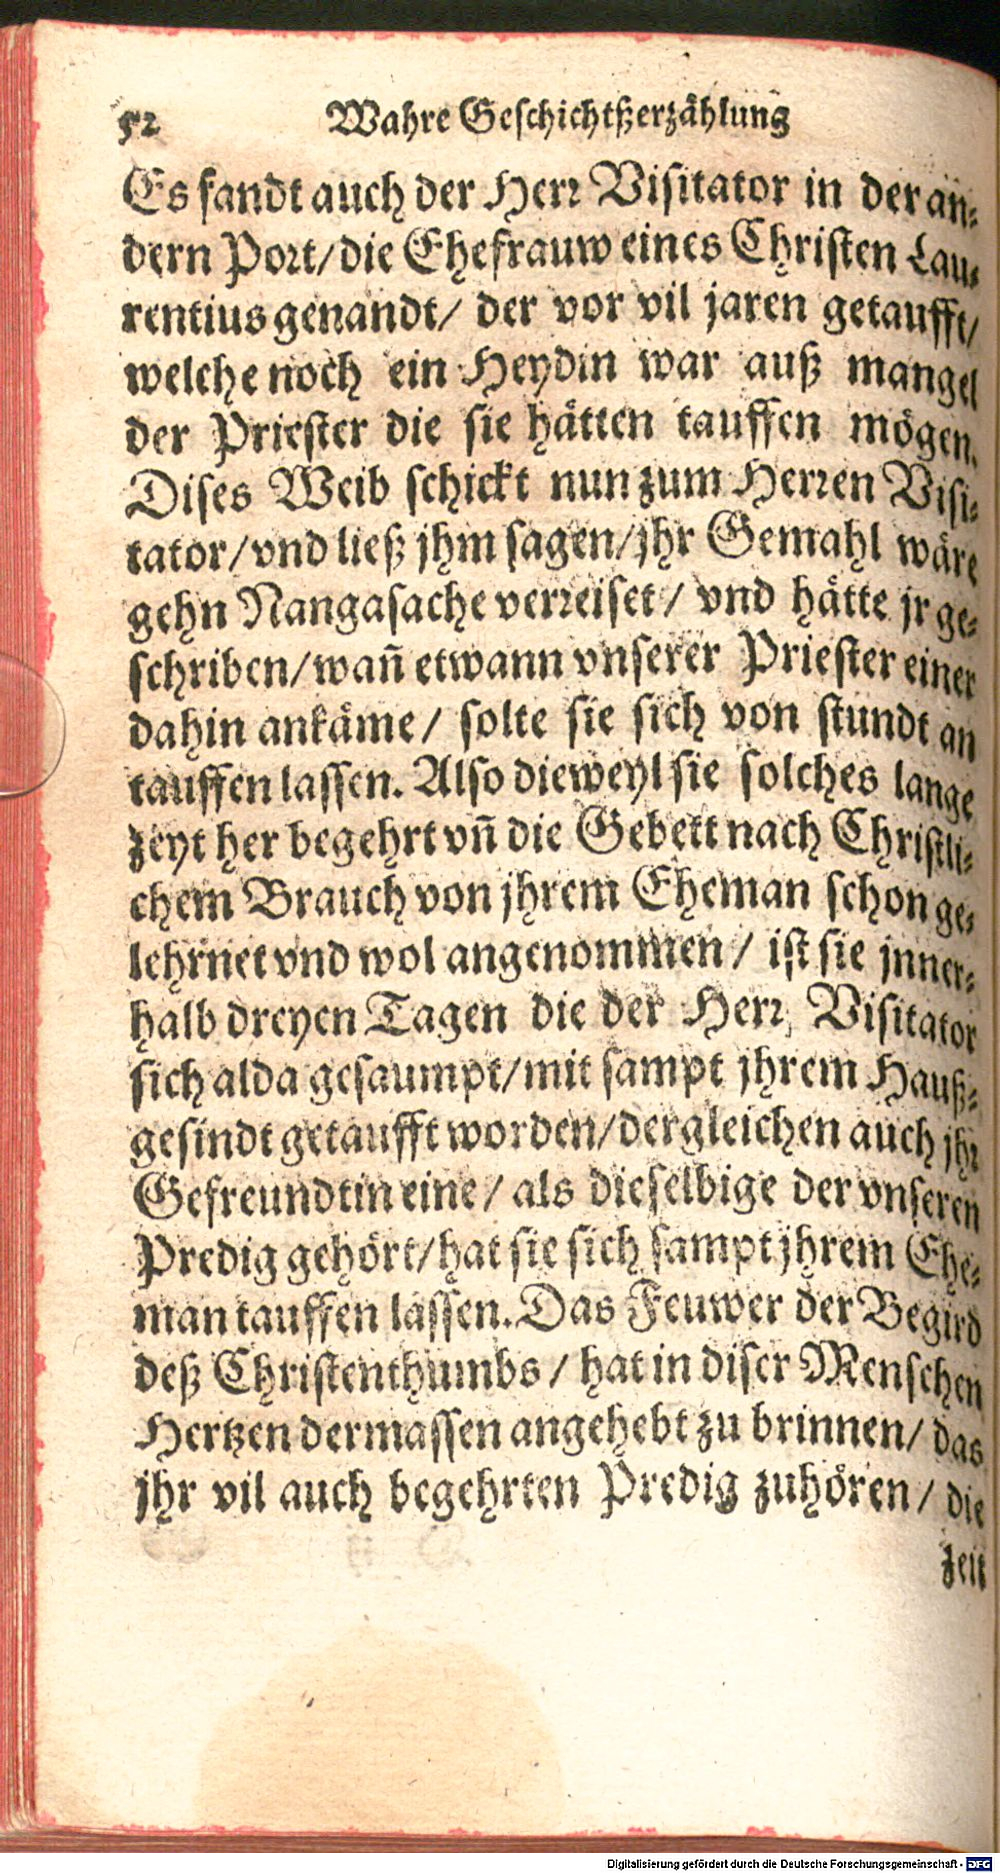 52 Wahre Geschichtßerzählung
Es fandt auch der Herr Visitator in der an-
dern Port/ die Ehefrauw eines Christen Lau-
rentius genandt/ der vor vil jaren getaufft/
welche noch ein Heydin war auß mangel
der Priester die sie hätten tauffen mögen.
Dises Weib schickt nun zum Herren Visi-
tator/ vnd ließ jhm sagen/ jhr Gemahl wäre
gehn Nangasache verreiset/ vnd hätte jr ge-
schriben/ wañ etwann vnserer Priester einer
dahin ankäme/ solte sie sich von stundt an
tauffen lassen. Also dieweyl sie solches lange
zeyt her begehrt vñ die Gebett nach Christli-
chem Brauch von jhrem Eheman schon ge-
lehrnet vnd wol angenommen/ ist sie jnner-
halb dreyen Tagen die der Herr Visitator
sich alda gesaumpt/ mit sampt jhrem Hauß-
gesindt getaufft worden/ dergleichen auch jhr
Gefreundtin eine/ als dieselbige der vnseren
Predig gehört/ hat sie sich sampt jhrem Ehe-
man tauffen lassen. Das Feuwer der Begird
deß Christenthumbs/ hat in diser Menschen
Hertzen dermassen angehebt zu brinnen/ das
jhr vil auch begehrten Predig zuhören/ die
zeit
Digitalisierung gefördert durch die Deutsche Forschungsgemeinschaft - DFG